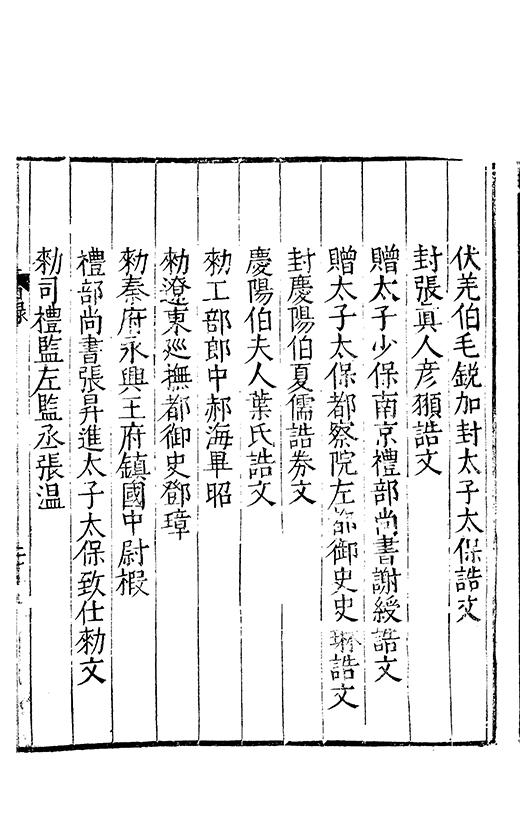 伏羌伯毛銳加封太子太保誥文
封張眞人彥頨誥文
贈太子少保南京禮部尚書謝綬誥文
贈太子太保都察院左都御史史琳誥文
封慶陽伯夏儒誥券文
慶陽伯夫人葉氏誥文
勑工部郎中郝海畢昭
勑遼東廵撫都御史鄧璋
勑秦府永興王府鎮國中尉椵
禮部尚書張昇進太子太保致仕勑文
勑司禮監左監丞張温
目錄